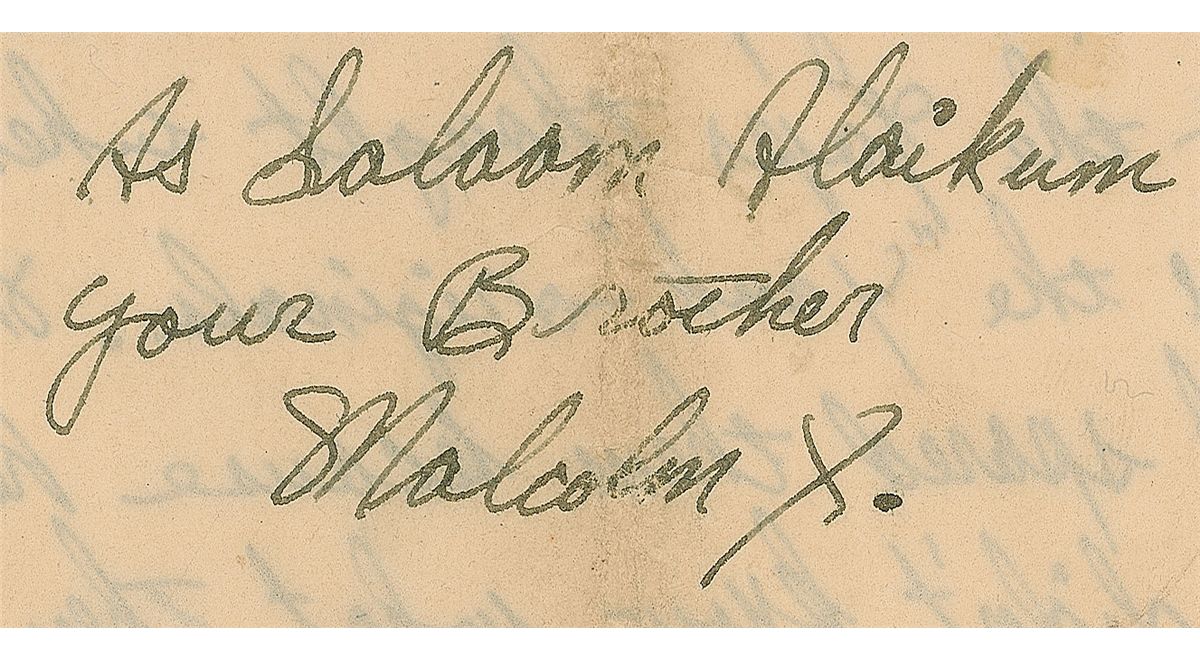 As Salaam Alaikum
your Brother
Malcolm X.